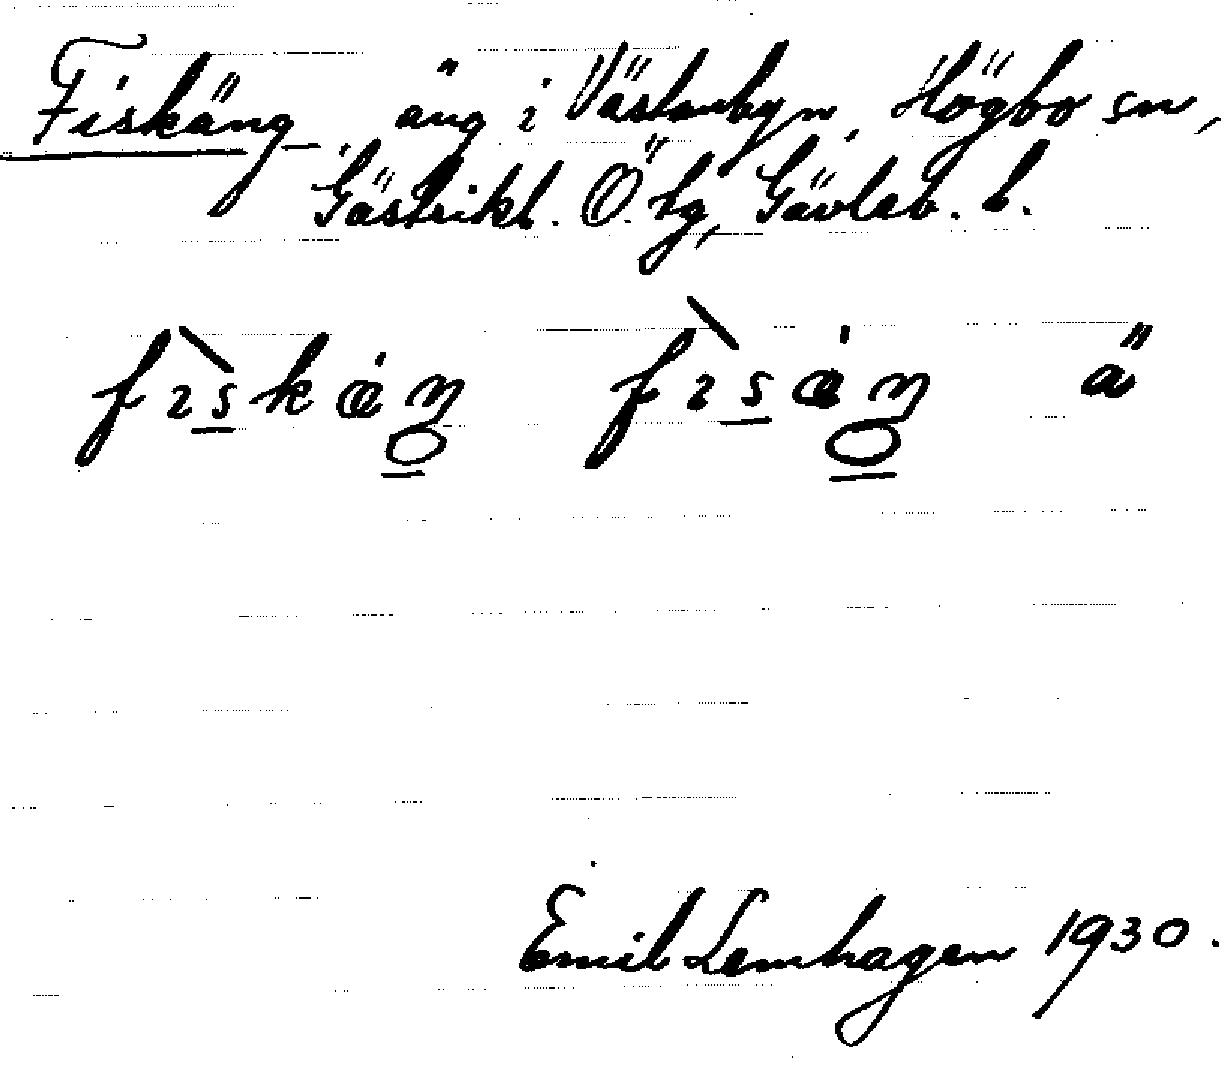 Fiskäng äng i Västerbyn, Högbo sn,
Gästrikl. Ö. tg, Gävleb. l.
fıskäŋ fısäŋ ä
Emil Lemhagen 1930.